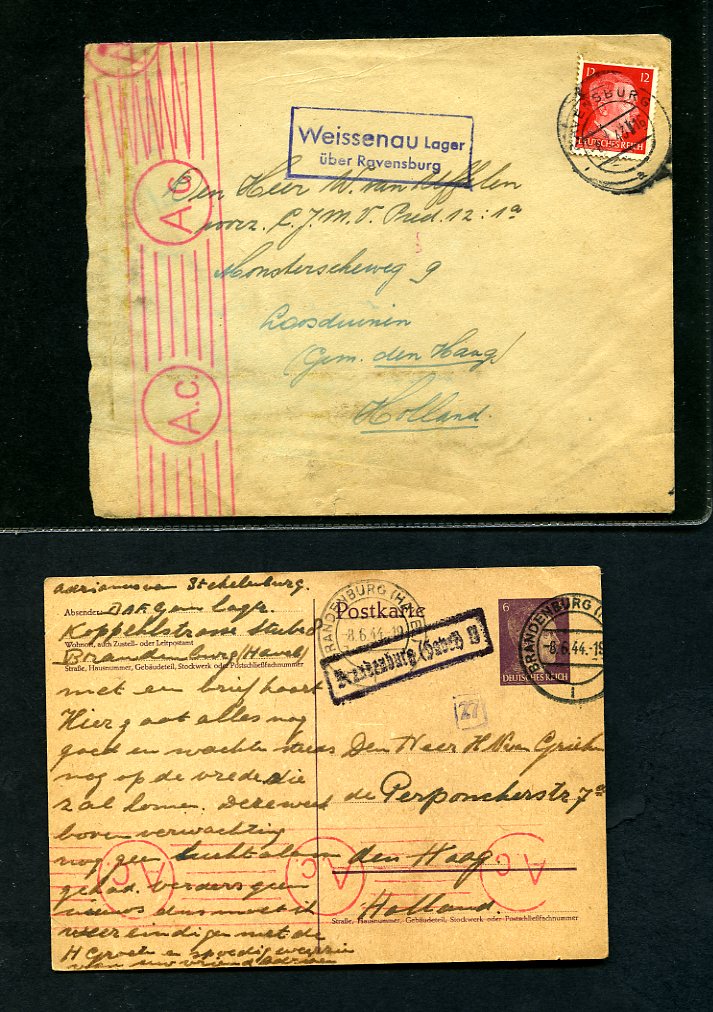 A.c.
A.c.
Weissenau Lager
über Ravensburg
12 12
DEUTSCHES REICH
RAVENSBURG
Den Heer W. van
voorz. C.J.M.V. Pred. 12:1a
Monsterscheweg 9
Loosduinen
(Gem. den Haag)
Holland.
Adrianus van Stekelenburg.
Absender: DAF Gem lagr.
Koppelstrasse Stube
Wohnort, auch Zustell- oder Leitpostamt
Brandenburg (Havel)
Straße, Hausnummer, Gebäudeteil, Stockwerk oder Postschließfachnummer
Postkarte
BRANDENBURG (H
-8.6.44.-19
Brandenburg (Havel)
6
DEUTSCHES REICH
BRANDENBURG (H
-8.6.44.-19
27
met en brief hoort
Hier gaat alles nog
goed en wachten
nog op de vrede die
zal komen. Deze week
boven verwachting
nog geen luchtalarm
gehad. verders geen
nieuws dus moet ik
weer eindigen met de
H Groeten en spoedig weerzien
van uw vriend Adriaan
Den Heer H
de Perponcherstr 7a
den Haag.
Holland.
Straße, Hausnummer, Gebäudeteil, Stockwerk oder Postschließfachnummer
Ac
Ac
Ac